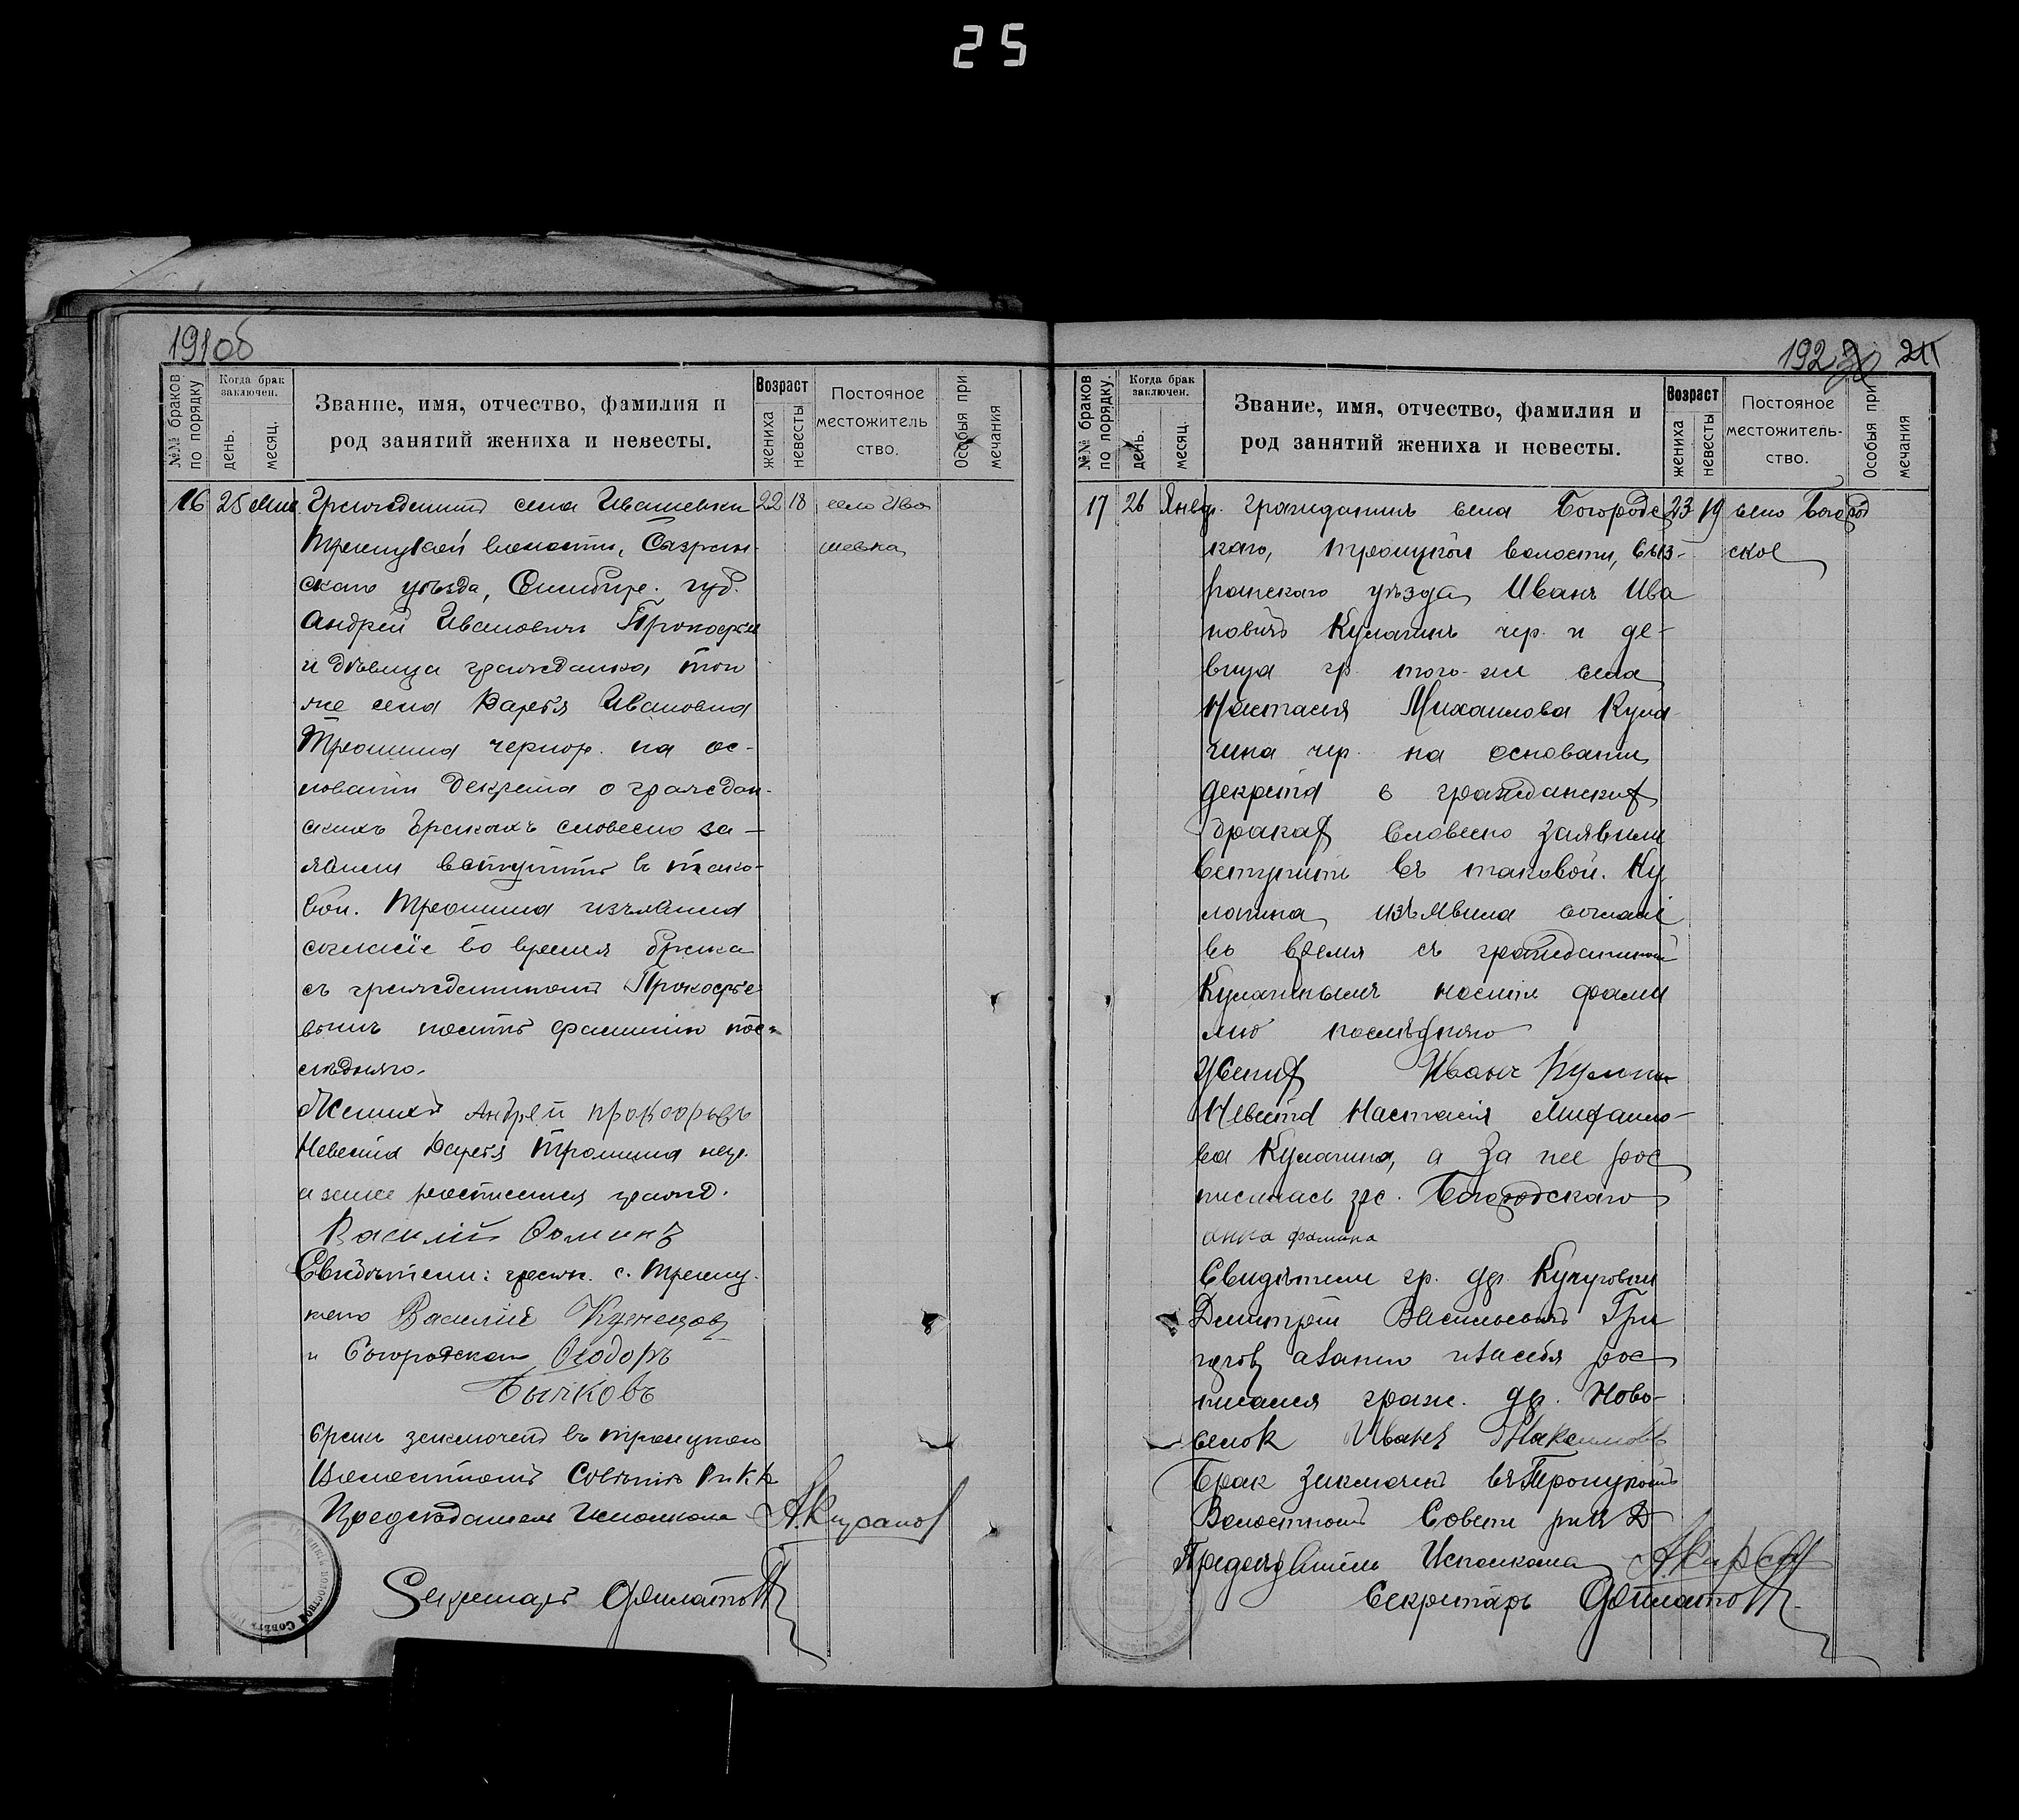 25
191об
№№ браков по порядку
Когда брак заключен.
день.
месяц.
Звание, имя, отчество, фамилия и
род занятий жениха и невесты.
Возраст
жениха
невесты
Постоянное
местожитель
ство.
Особыя при
мечания
16 25 Гражданинъ села Ивашевки 22 18 село Ива
Троицкой волости, Сызран- шевка
скаго уѣзда, Симбирс. губ.
Андрей Ивановичъ Прокофьев
и дѣвица гражданка той
же села Дарья Ивановна
Трошина чернор. на ос-
новании декрета о граждан-
скихъ бракахъ словесно за-
явили вступить в тако-
вой. Трошина изъявила
согласіе во время брака
съ гражданиномъ Прокофье
вымъ носить фамилию пос-
ледняго.
Женихъ Андрей прокофьевъ
Невеста Дарья Трошина негр.
а за нее росписался гражд.
Василій Фоминъ
Свидѣтели: гражн. с. Троиц-
каго Василий Кузнецов
и Богородскаго Ѳеодоръ
Бычковъ
брак заключенъ въ троицком
Волостномъ Совѣтѣ
Председатель Исполкома
Секретарь Филатов
192 20 21
№№ браков по порядку.
Когда брак заключен.
день.
месяц.
Звание, имя, отчество, фамилия и
род занятий жениха и невесты.
Возраст
жениха
невесты
Постояное
местожитель-
ство.
Особыя при
мечания
17 26 Январ. гражданинъ села Богородс 23 19 село Богород
каго, троицкой волости, Сыз- ское
ранскаго уѣзда Иванъ Ива
новичъ Кулагинъ чер. и де-
вица гр. того-же села
Настасия Михаилова Кула-
гина чер. на основании
декрета о гражданских
браках словесно заявили
вступить въ таковой. Ку
лагина изъявила согласіе
во время съ гражданиномъ
Кулагинымъ носить фами
лию послѣдняго
Жених Иванъ Кулагин
Невеста Настасия Михаило-
ва Кулагина, а за нее рос
писалась гр. с. Богородскаго
анна фомина
Свидѣтели гр. др.
Дмитрий Васильевичъ Гри
а за него и за себя рос
писался граж. др. Ново-
селок Иванъ Максимовъ
Брак заключенъ въ Троицкомъ
Волостномъ Совете
Председатель Исполкома
Секретарь Филатов